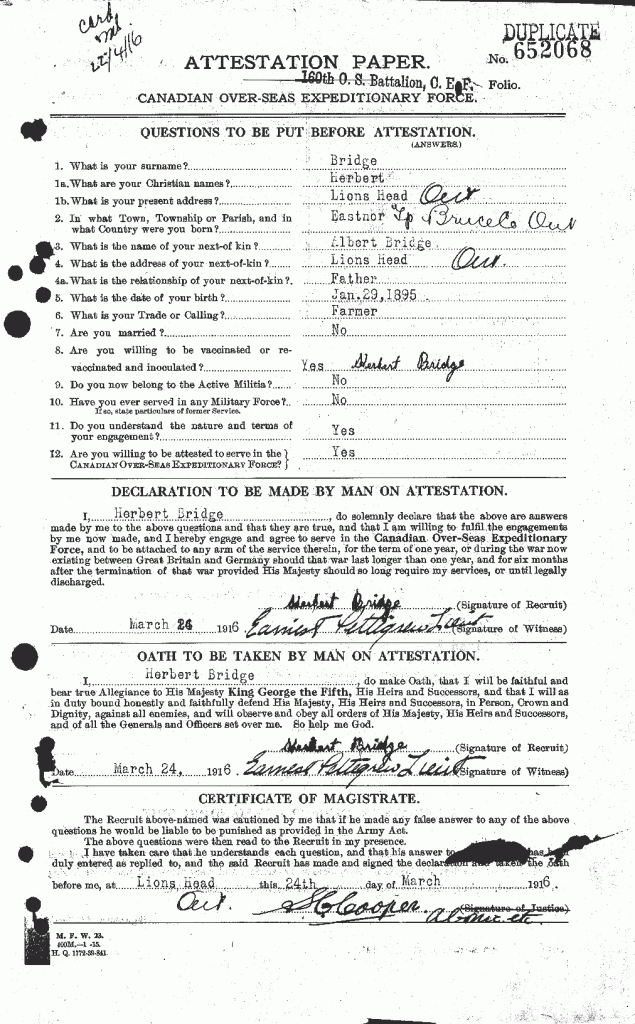 Card
22/4/16
DUPLICATE
ATTESTATION PAPER. No. 652068
160th O. S. Battalion, C. E. F. Folio.
CANADIAN OVER-SEAS EXPEDITIONARY FORCE.
QUESTIONS TO BE PUT BEFORE ATTESTATION.
(ANSWERS.)
1. What is your surname? Bridge
1a. What are your Christian names? Herbert
1b. What is your present address? Lions Head Ont
2. In what Town, Township or Parish, and in
what Country were you born? Eastnor Tp Bruce Co Ont
3. What is the name of your next-of kin? Albert Bridge
4. What is the address of your next-of-kin? Lions Head Ont.
4a. What is the relationship of your next-of-kin? Father
5. What is the date of your birth? Jan.29,1895
6. What is your Trade or Calling? Farmer
7. Are you married? No
8. Are you willing to be vaccinated or re-
vaccinated and inoculated? Yes Herbert Bridge
9. Do you now belong to the Active Militia? No
10. Have you ever served in any Military Force? No
If so, state particulars of former Service.
11. Do you understand the nature and terms of
your engagement? Yes
12. Are you willing to be attested to serve in the } Yes
CANADIAN OVER-SEAS EXPEDITIONARY FORCE? }
DECLARATION TO BE MADE BY MAN ON ATTESTATION.
I, Herbert Bridge, do solemnly declare that the above are answers
made by me to the above questions and that they are true, and that I am willing to fulfil the engagements
by me now made, and I hereby engage and agree to serve in the Canadian Over-Seas Expeditionary
Force, and to be attached to any arm of the service therein, for the term of one year, or during the war now
existing between Great Britain and Germany should that war last longer than one year, and for six months
after the termination of that war provided His Majesty should so long require my services, or until legally
discharged.
Herbert Bridge (Signature of Recruit)
Date March 24 1916 Earnest Pettigrew Lieut (Signature of Witness)
OATH TO BE TAKEN BY MAN ON ATTESTATION.
I, Herbert Bridge, do make Oath, that I will be faithful and
bear true Allegiance to His Majesty King George the Fifth, His Heirs and Successors, and that I will as
in duty bound honestly and faithfully defend His Majesty, His Heirs and Successors, in Person, Crown and
Dignity, against all enemies, and will observe and obey all orders of His Majesty, His Heirs and Successors,
and of all the Generals and Officers set over me. So help me God.
Herbert Bridge (Signature of Recruit)
Date March 24, 1916 Earnest Pettigrew Lieut (Signature of Witness)
CERTIFICATE OF MAGISTRATE.
The Recruit above-named was cautioned by me that if he made any false answer to any of the above
questions he would be liable to be punished as provided in the Army Act.
The above questions were then read to the Recruit in my presence.
I have taken care that he understands each question, and that his answer to has been
duly entered as replied to, and the said Recruit has made and signed the declaration and taken the oath
before me, at Lions Head this 24th day of March 1916.
Ont S C Cooper (Signature of Justice)
M. F. W. 23.
400M.—1-15.
H. Q. 1772-39-841.